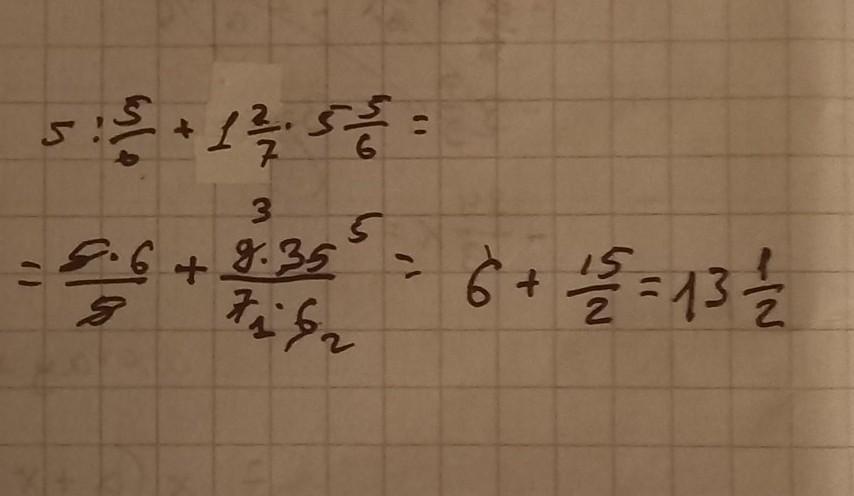 5 : 5/6 + 1 2/7 · 5 5/6 =
= 5·6/5 + 9·35/7·6 (3, 5, 1, 2) = 6 + 15/2 = 13 1/2